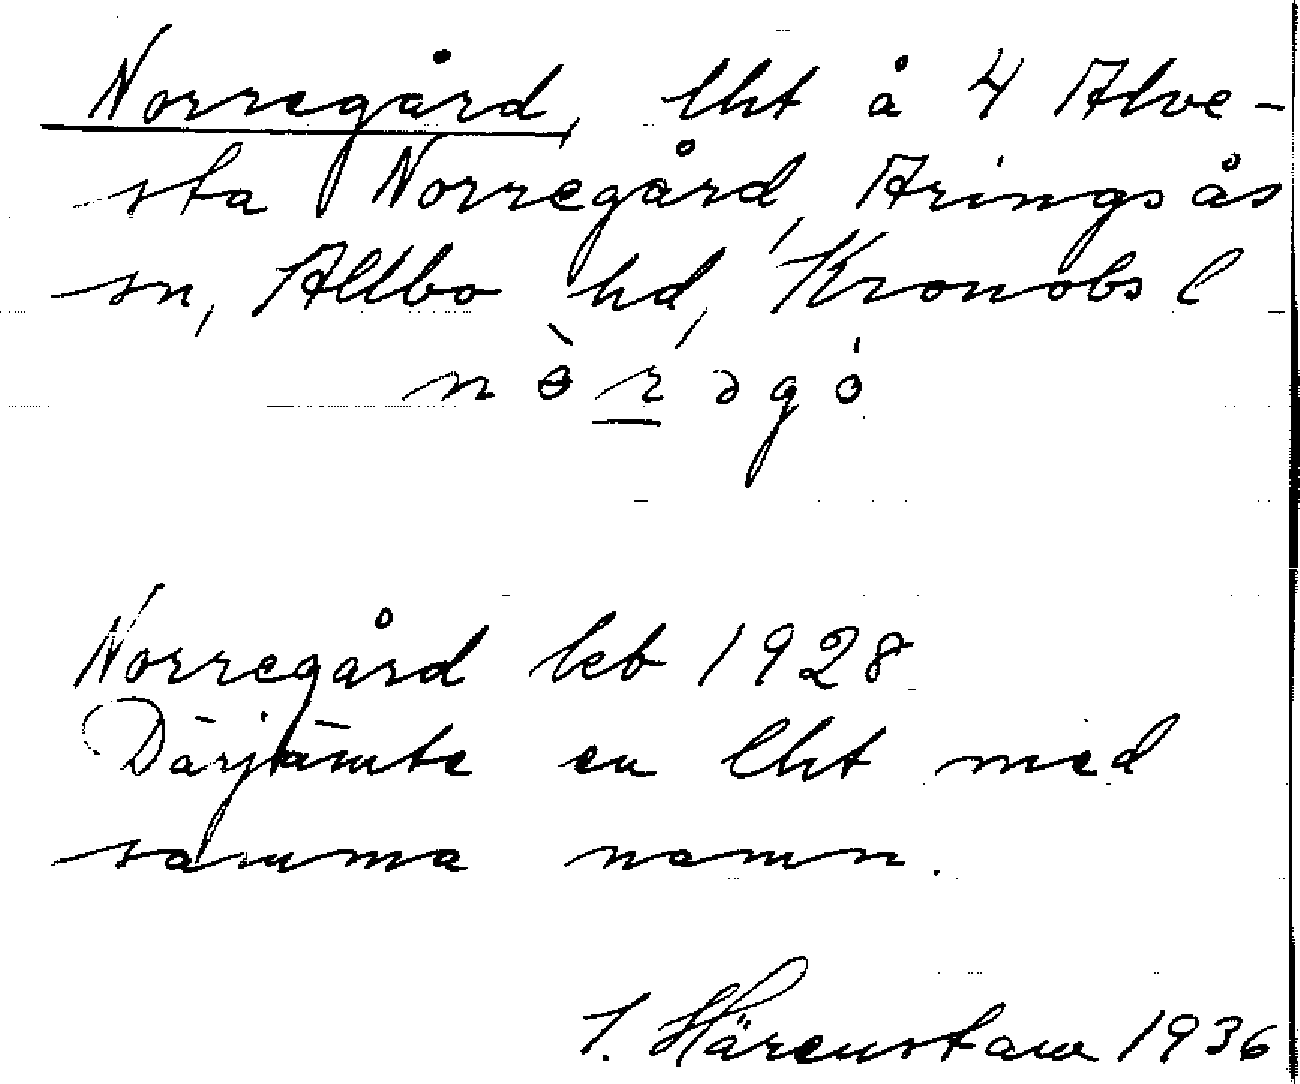 Norregård, lht å 4 Alve-
sta Norregård, Aringsås
sn, Allbo hd, Kronobs l
nɵ̀rəgó
Norregård leb 1928
Därjämte en lht med
samma namn.
I. Härenstam 1936